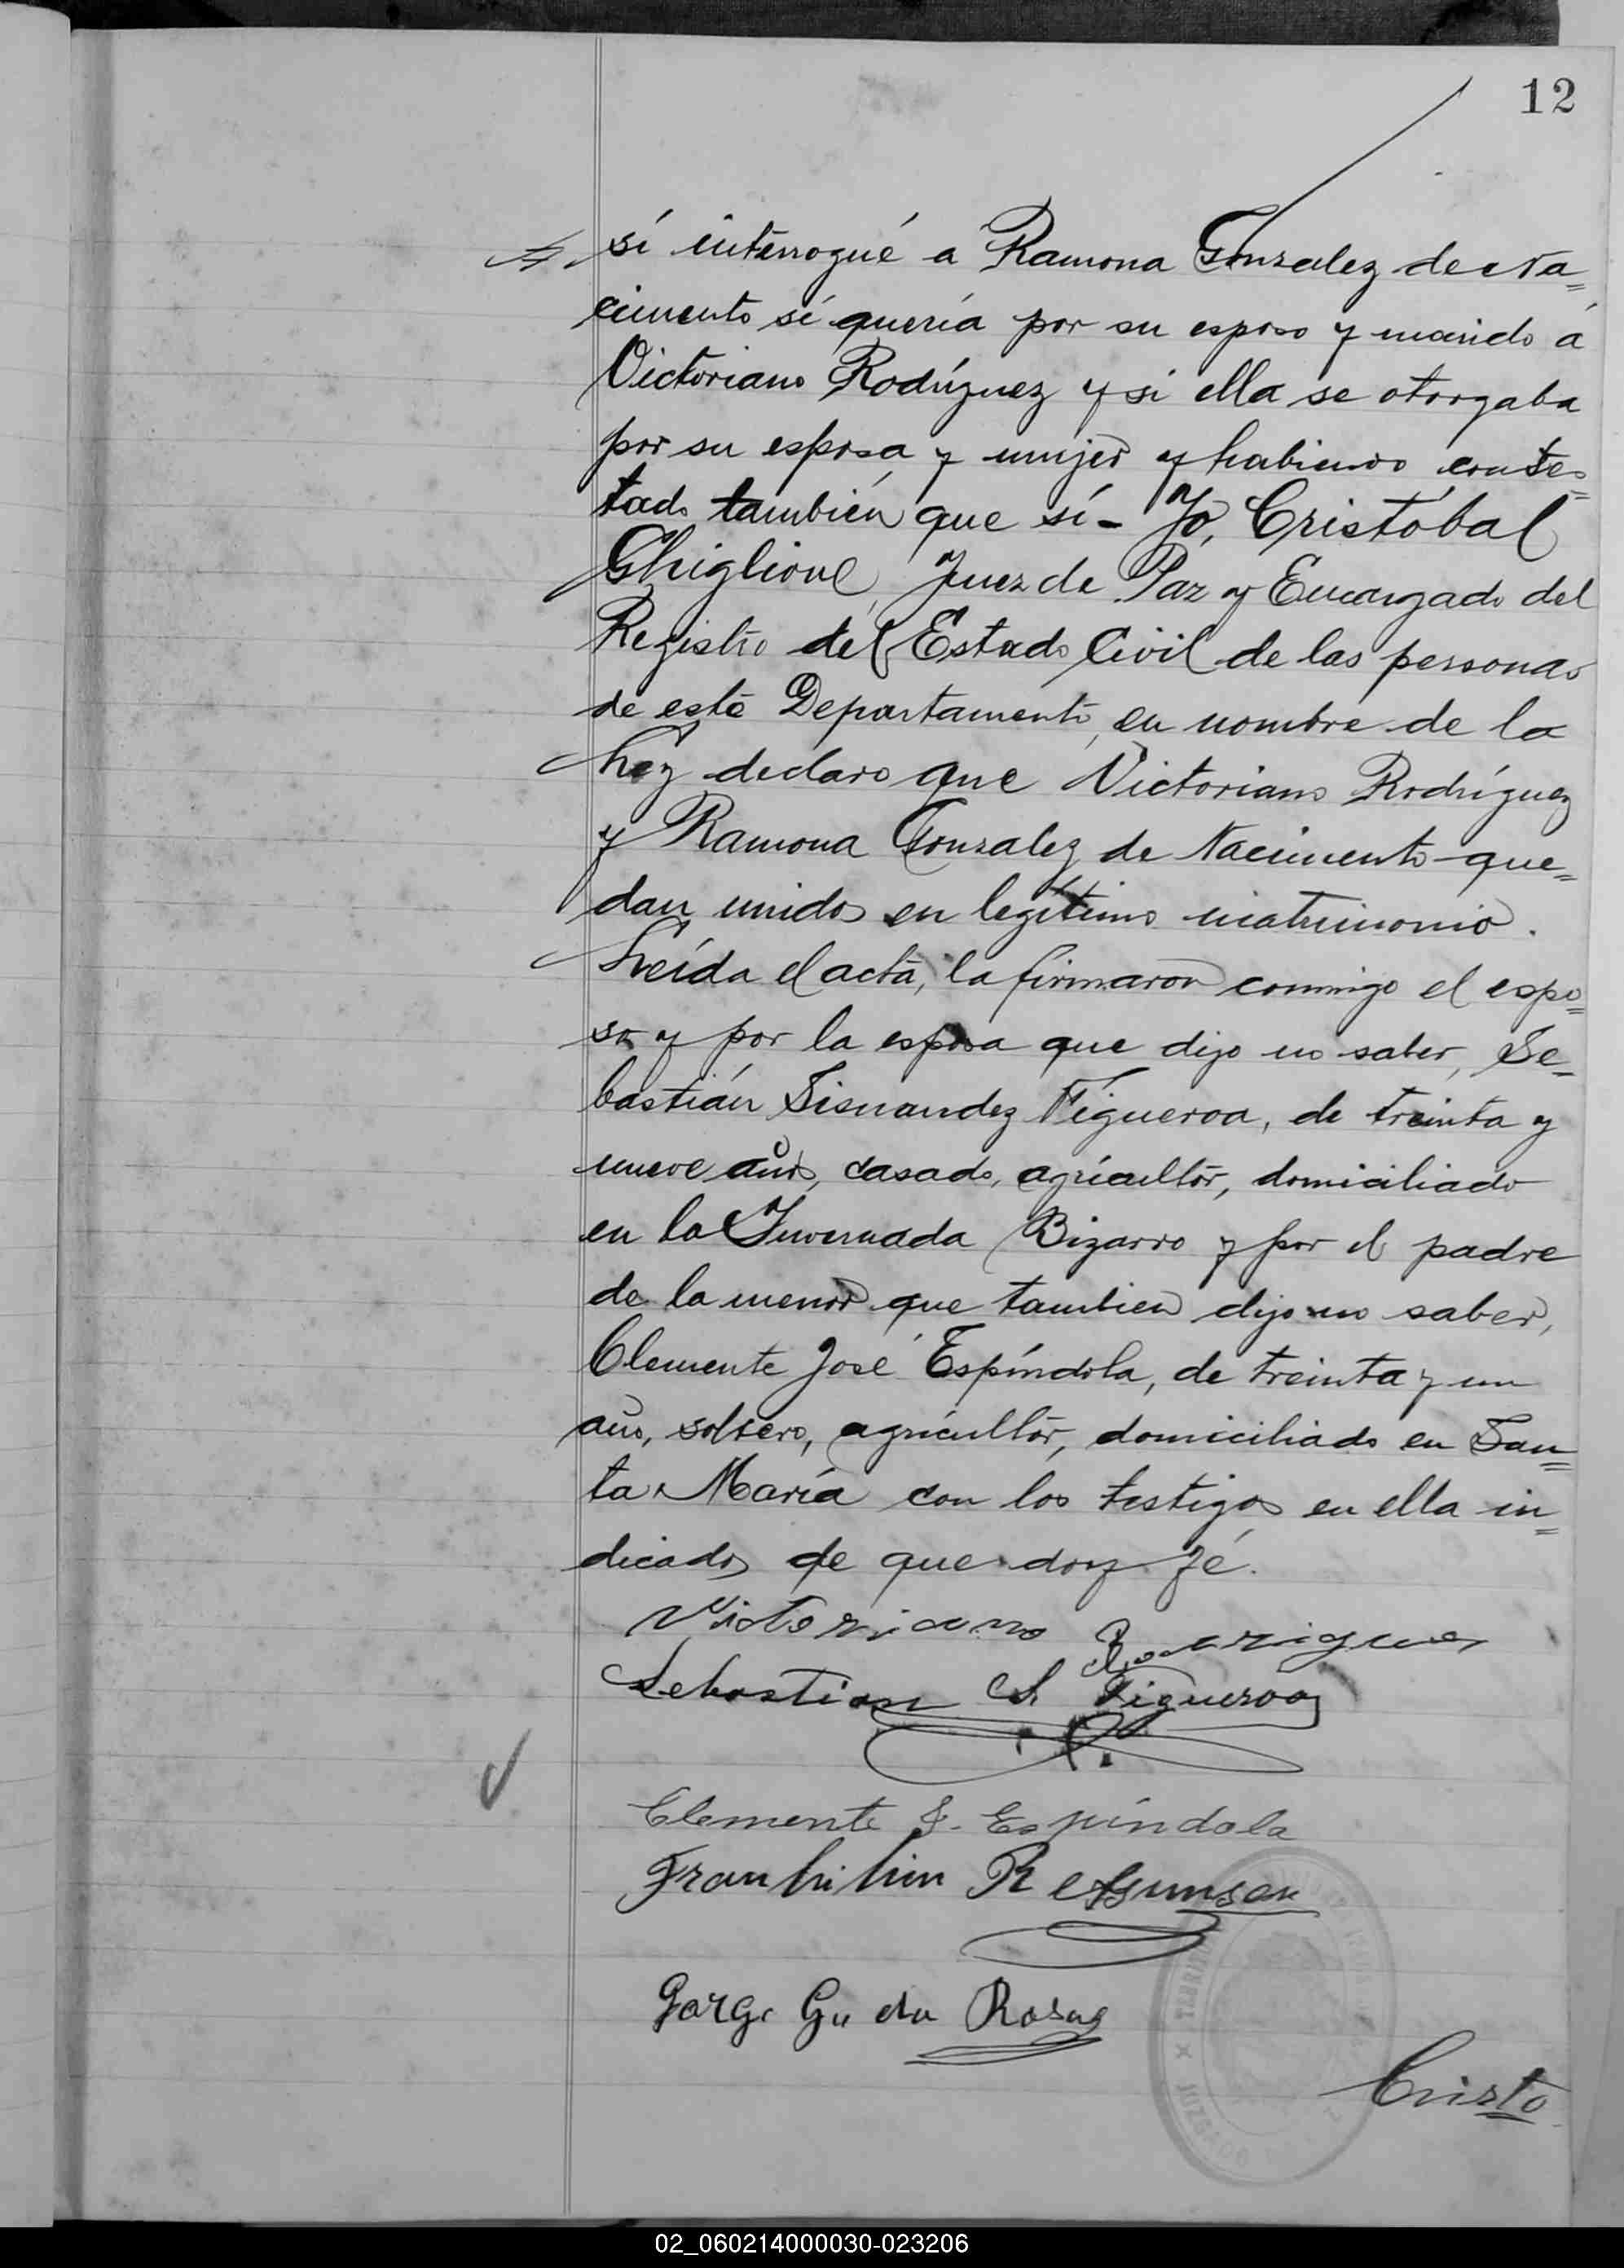 12
sí interrogué a Ramona Gonzalez de Na=
cimento si quería por su esposo y marido á
Victoriano Rodríguez y si ella se otorgaba
por su esposa y mujer y habiendo contes=
tado también que sí - Yo, Cristóbal
Ghiglione, Juez de Paz y Encargado del
Registro del Estado Civil de las personas
de este Departamento, en nombre de la
Ley declaro que Victoriano Rodríguez
y Ramona Gonzalez de Nacimento que=
dan unidos en legítimo matrimonio.
Leída el acta, la firmaron conmigo el espo=
so y por la esposa que dijo no saber, Se=
bastián Sisnandez Figueroa, de treinta y
nueve años, casado, agricultor, domiciliado
en la Invernada Bizarro y por el padre
de la menor que tambien dijo no saber,
Clemente José Espíndola, de treinta y un
año, soltero, agricultor, domiciliado en San=
ta María con los testigos en ella in=
dicados de que doy fé.
Victoriano Rodriguez
Sebastian S Figueroa
Clemente J. Espíndola
R
Jorge Rosas
JUZGADO
Cristo
02_060214000030-023206